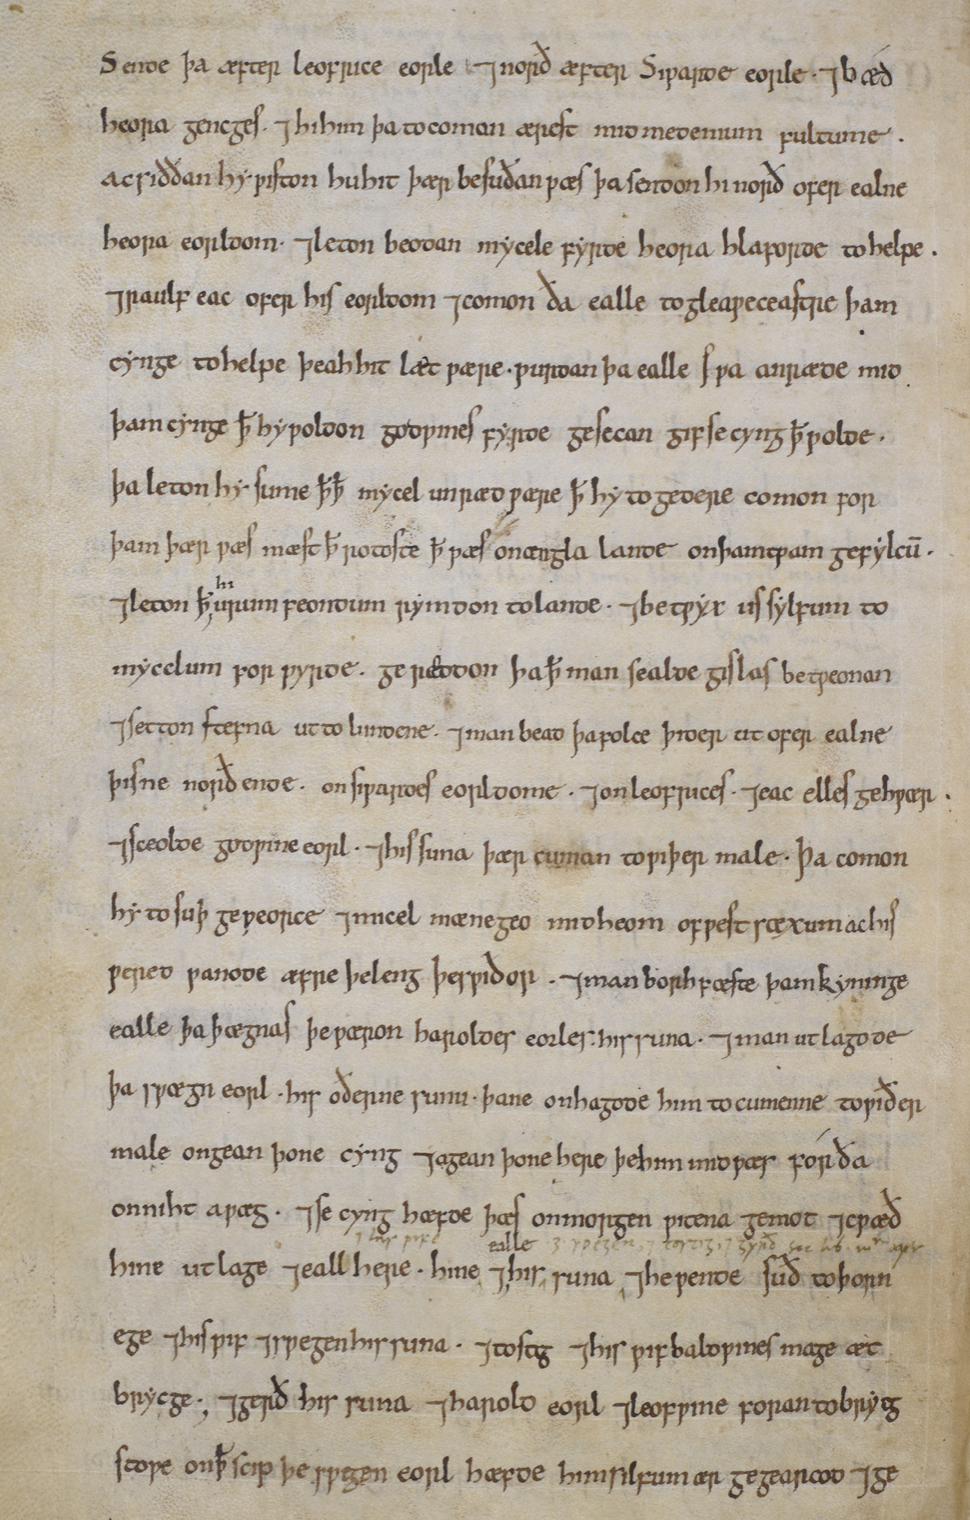 Sende þa æfter leofrice eorle ⁊ norð æfter Siƿarde eorle · ⁊ bæd
heora gencges · ⁊ hi him þa to coman ærest mid medemum fultume ·
ac siððan hy ƿiston hu hit þær besuðan ƿæs þa sendon hi norð ofer ealne
heora eorldom · ⁊ leton beodan mycele fyrde heora hlaforde to helpe ·
⁊ raulf eac ofer his eorldom ⁊ comon ða ealle to gleaƿeceastre þam
cynge to helpe þeah hit læt ƿære · ƿurdan þa ealle sƿa anræde mid
þam cynge ꝥ hy ƿoldon godƿines fyrde gesecan gif se cyng ꝥ ƿolde ·
þa leton hy sume ꝥ ꝥ mycel unræd ƿære ꝥ hy togedere comon for
þam þær ƿæs mæst ꝥ rotoste ꝥ ƿæs on ængla lande on þam tƿam gefylcū ·
⁊ leton ꝥ hi urum feondum rymdon to lande · ⁊ betƿyx us sylfum to
mycclum forƿyrde · geræddon þa ꝥ man sealde gislas betƿeonan
⁊ setton stefna ut to lundene · ⁊ man bead þa folce þider ut ofer ealne
þisne norð ende · on siƿardes eorldome · ⁊ on leofrices · ⁊ eac elles gehƿær ·
⁊ sceolde godƿine eorl · ⁊ his suna þær cuman to ƿiþer male · Þa comon
hy to suþ geƿeorce ⁊ micel mænegeo mid heom of ƿest sæxum ac his
ƿered ƿanode æfre þe leng þe sƿiðor · ⁊ man borh fæste þam kyninge
ealle þa þægnas þe ƿæron haroldes eorles his suna · ⁊ man utlagode
þa sƿægn eorl · his oðerne sunu · þane onhagode him to cumenne to ƿiðer
male ongean þone cyng ⁊ agean þone here þe him mid ƿæs for ða
on niht aƿæg · ⁊ se cyng hæfde þæs on morgen ƿitena gemot ⁊ cƿæð
ealle
hine utlage ⁊ eall here · hine ⁊ his suna ⁊ he ƿende suð to þorn
ege ⁊ his ƿif ⁊ sƿegen his suna · ⁊ tostig ⁊ his ƿif baldƿines mage æt
brycge · ⁊ gerð his suna ⁊ harold eorl ⁊ leofƿine foran to brycg
stoƿe on ꝥ scip þe sƿegen eorl hæfde him silfum ær gegearcod ⁊ ge